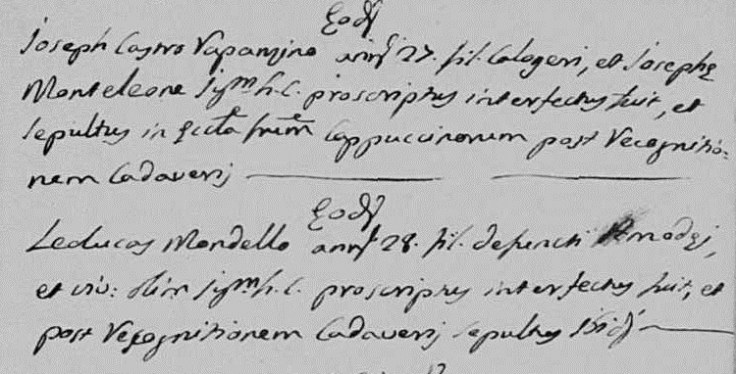 Eodj
Joseph Castro Vapanzino annj 27. fil. Calogeri, et Josephę
Monteleone jym h. c. proscriptus interfectus fuit, et
sepultus in Eccla frum Cappuccinorum post recognitio-
nem Cadaverij
Eodj
Leolucas Mondello annj 28. fil. defuncti
et viv: jym h. c. proscriptus interfectus fuit, et
post recognitionem Cadaverij sepultus ibidj